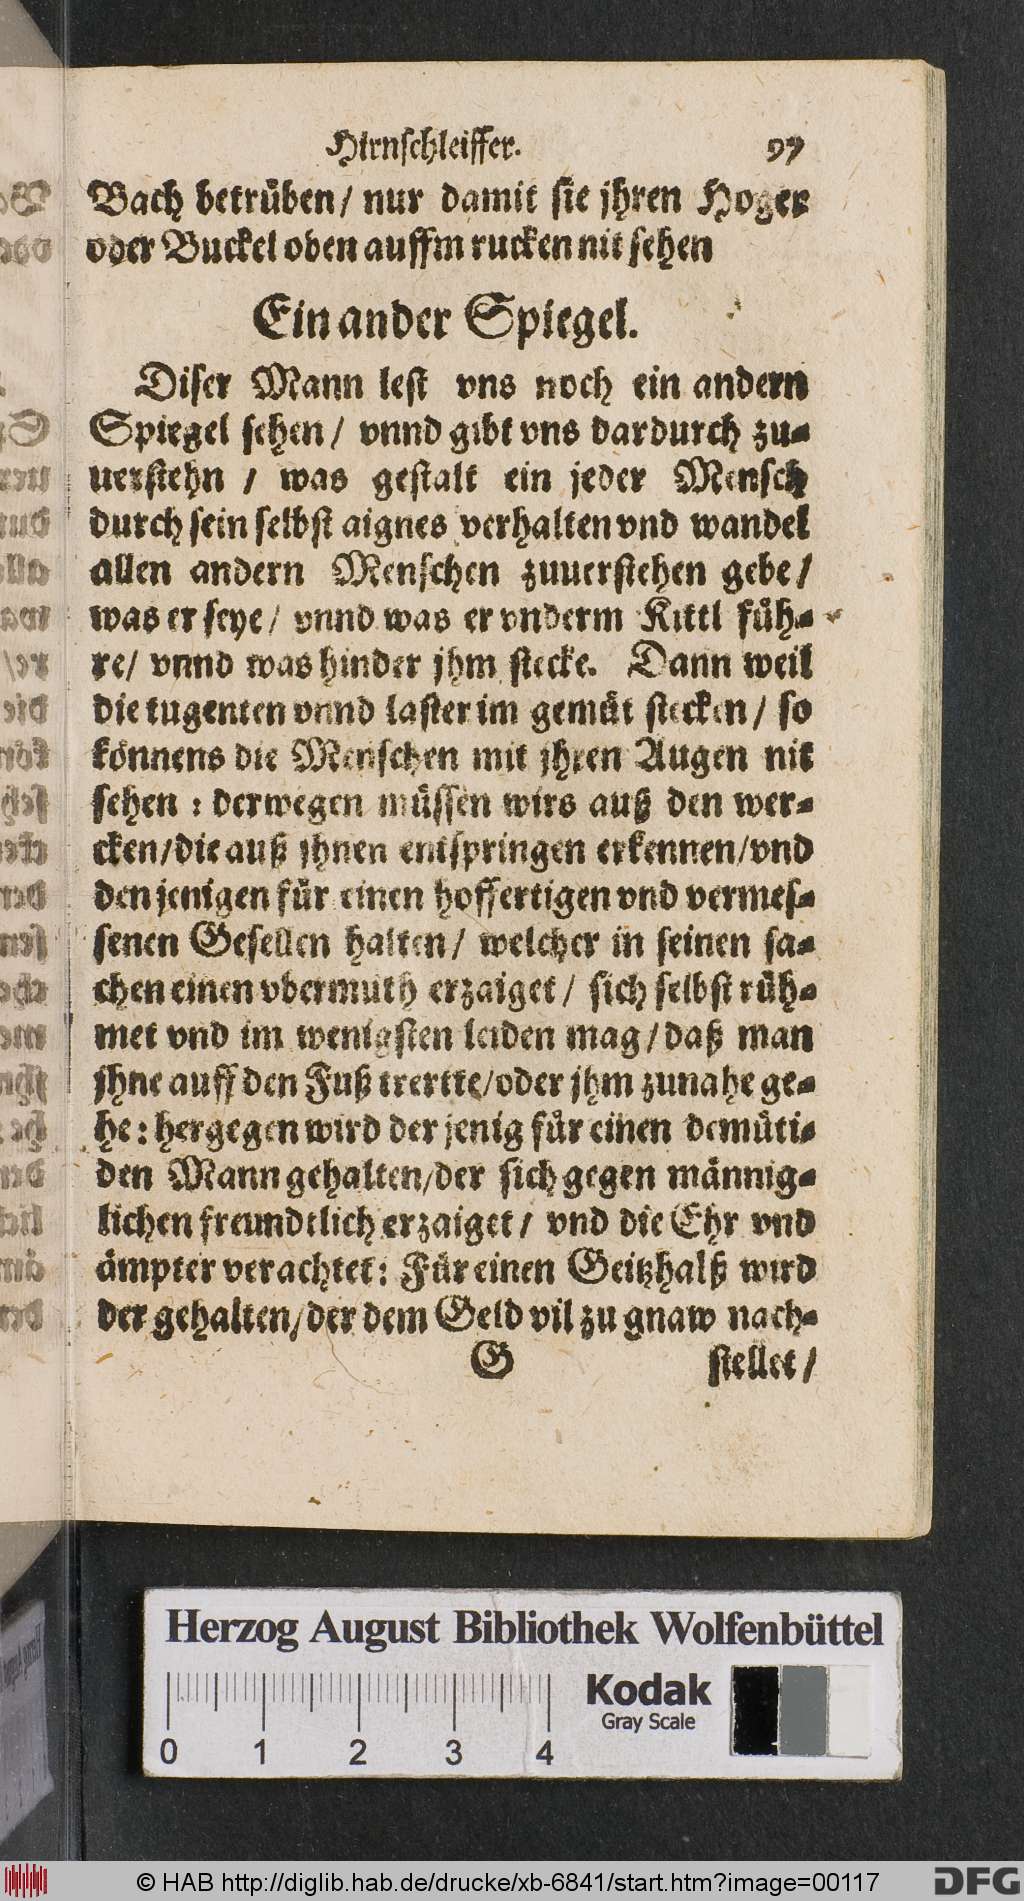 Hirnschleiffer. 97
Bach betrüben / nur damit sie jhren Hoger
oder Buckel oben auffm rucken nit sehen
Ein ander Spiegel.
Diser Mann lest vns noch ein andern
Spiegel sehen / vnnd gibt vns dardurch zu-
uerstehn / was gestalt ein jeder Mensch
durch sein selbst aignes verhalten vnd wandel
allen andern Menschen zuuerstehen gebe /
was er seye / vnnd was er vnderm Kittl füh-
re / vnnd was hinder jhm stecke. Dann weil
die tugenten vnnd laster im gemüt stecken / so
können​s die Menschen mit jhren Augen nit
sehen : derwegen müssen wirs auß den wer-
cken / die auß jhnen entspringen erkennen / vnd
den jenigen für einen hoffertigen vnd vermes-
senen Gesellen halten / welcher in seinen sa-
chen einen vbermuth erzaiget / sich selbst rüh-
met vnd im wenigsten leiden mag / daß man
jhne auff den Fuß trertte / oder jhm zunahe ge-
he : hergegen wird der jenig für einen demüti-
den Mann gehalten / der sich gegen männig-
lichen freundtlich erzaiget / vnd die Ehr vnd
ämpter verachtet : Für einen Geitzhalß wird
der gehalten / der dem Geld vil zu gnaw nach-
G stellet /
Herzog August Bibliothek Wolfenbüttel
Kodak
Gray Scale
0 1 2 3 4
© HAB http://diglib.hab.de/drucke/xb-6841/start.htm?image=00117
DFG